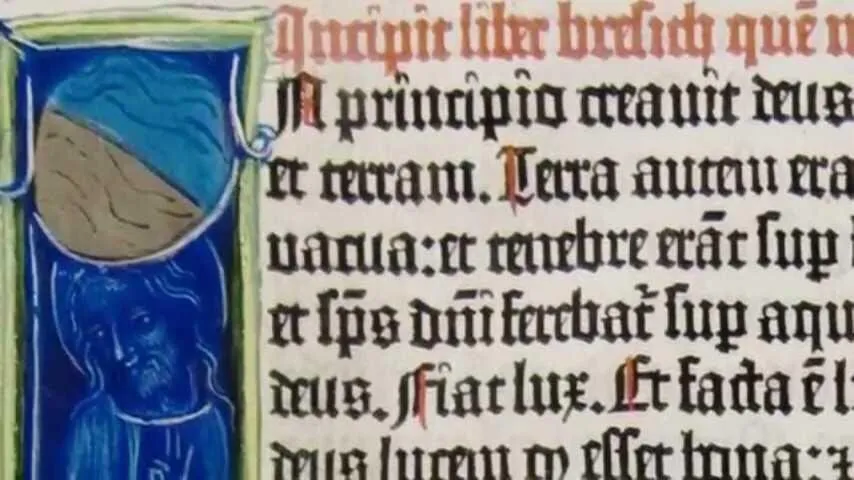 Incipit liber bresich quē
In principio creavit deus
et terram. Terra autem era
vacua: et tenebre erāt sup
et sp̄s dn̄i ferebat᷑ sup aqu
deus. Fiat lux. Et facta ē l
deus lucem ꝙ esset bona: ⁊